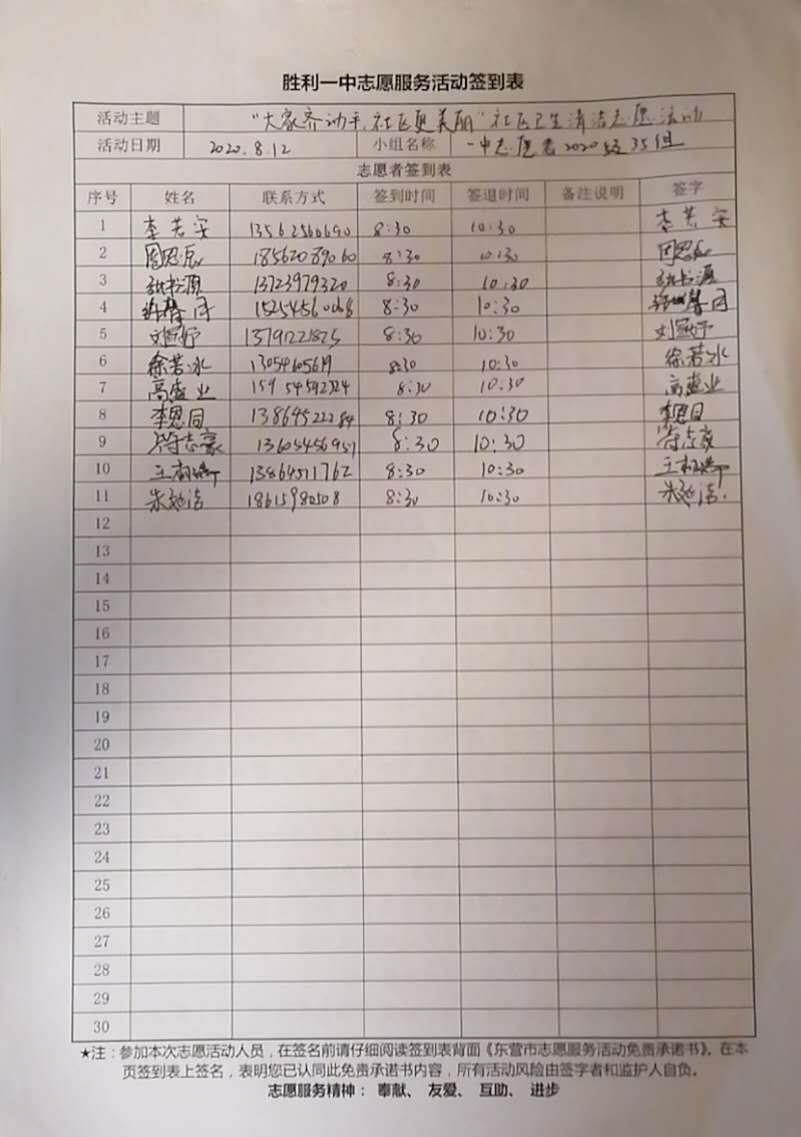 胜利一中志愿服务活动签到表
活动主题 “大家齐动手,社区更美丽”社区卫生清洁志愿活动
活动日期 2020.8.12 小组名称 一中志愿者2020级35组
志愿者签到表
序号 姓名 联系方式 签到时间 签退时间 备注说明 签字
1 李若安 13562560690 8:30 10:30 李若安
2 周思辰 18562089060 8:30 10:30 周思辰
3 张书源 13723979320 8:30 10:30 张书源
4 15254560068 8:30 10:30
5 刘冠妤 13791221825 8:30 10:30 刘冠妤
6 徐若冰 13054605619 8:30 10:30 徐若冰
7 高盛业 15954592324 8:30 10:30 高盛业
8 李恩同 13864522284 8:30 10:30 李恩同
9 志豪 13605456957 8:30 10:30
10 13864511762 8:30 10:30
11 18615980508 8:30 10:30
12
13
14
15
16
17
18
19
20
21
22
23
24
25
26
27
28
29
30
★注:参加本次志愿活动人员,在签名前请仔细阅读签到表背面《东营市志愿服务活动免责承诺书》。在本
页签到表上签名,表明您已认同此免责承诺书内容,所有活动风险由签字者和监护人自负。
志愿服务精神: 奉献、 友爱、 互助、 进步